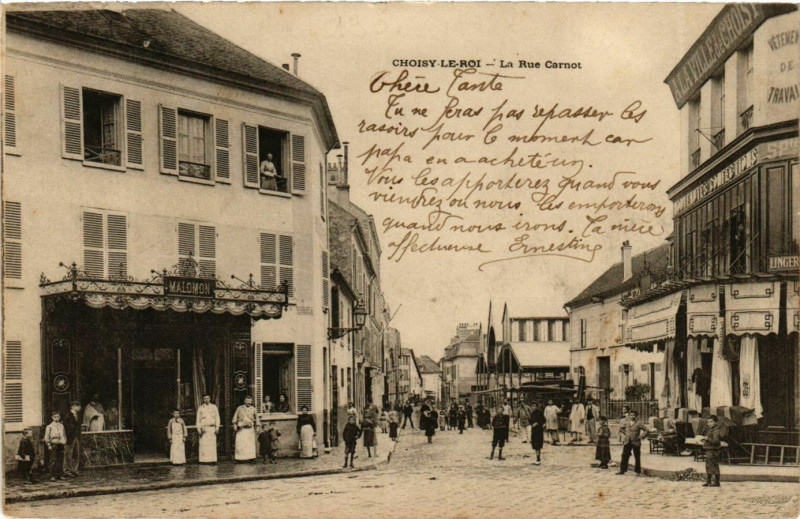 CHOISY-LE-ROI – La Rue Carnot
Chère Tante
Tu ne feras pas repasser les
rasoirs pour le moment car
papa en a acheté un.
Vous les apporterez quand vous
viendrez ou nous les emporterons
quand nous irons. Ta nièce
affectueuse Ernestine
MALOMON
A LA VILLE DE CHOISY
VÊTEMENTS
DE
TRAVAIL
CONFECTIONS
LINGERIE